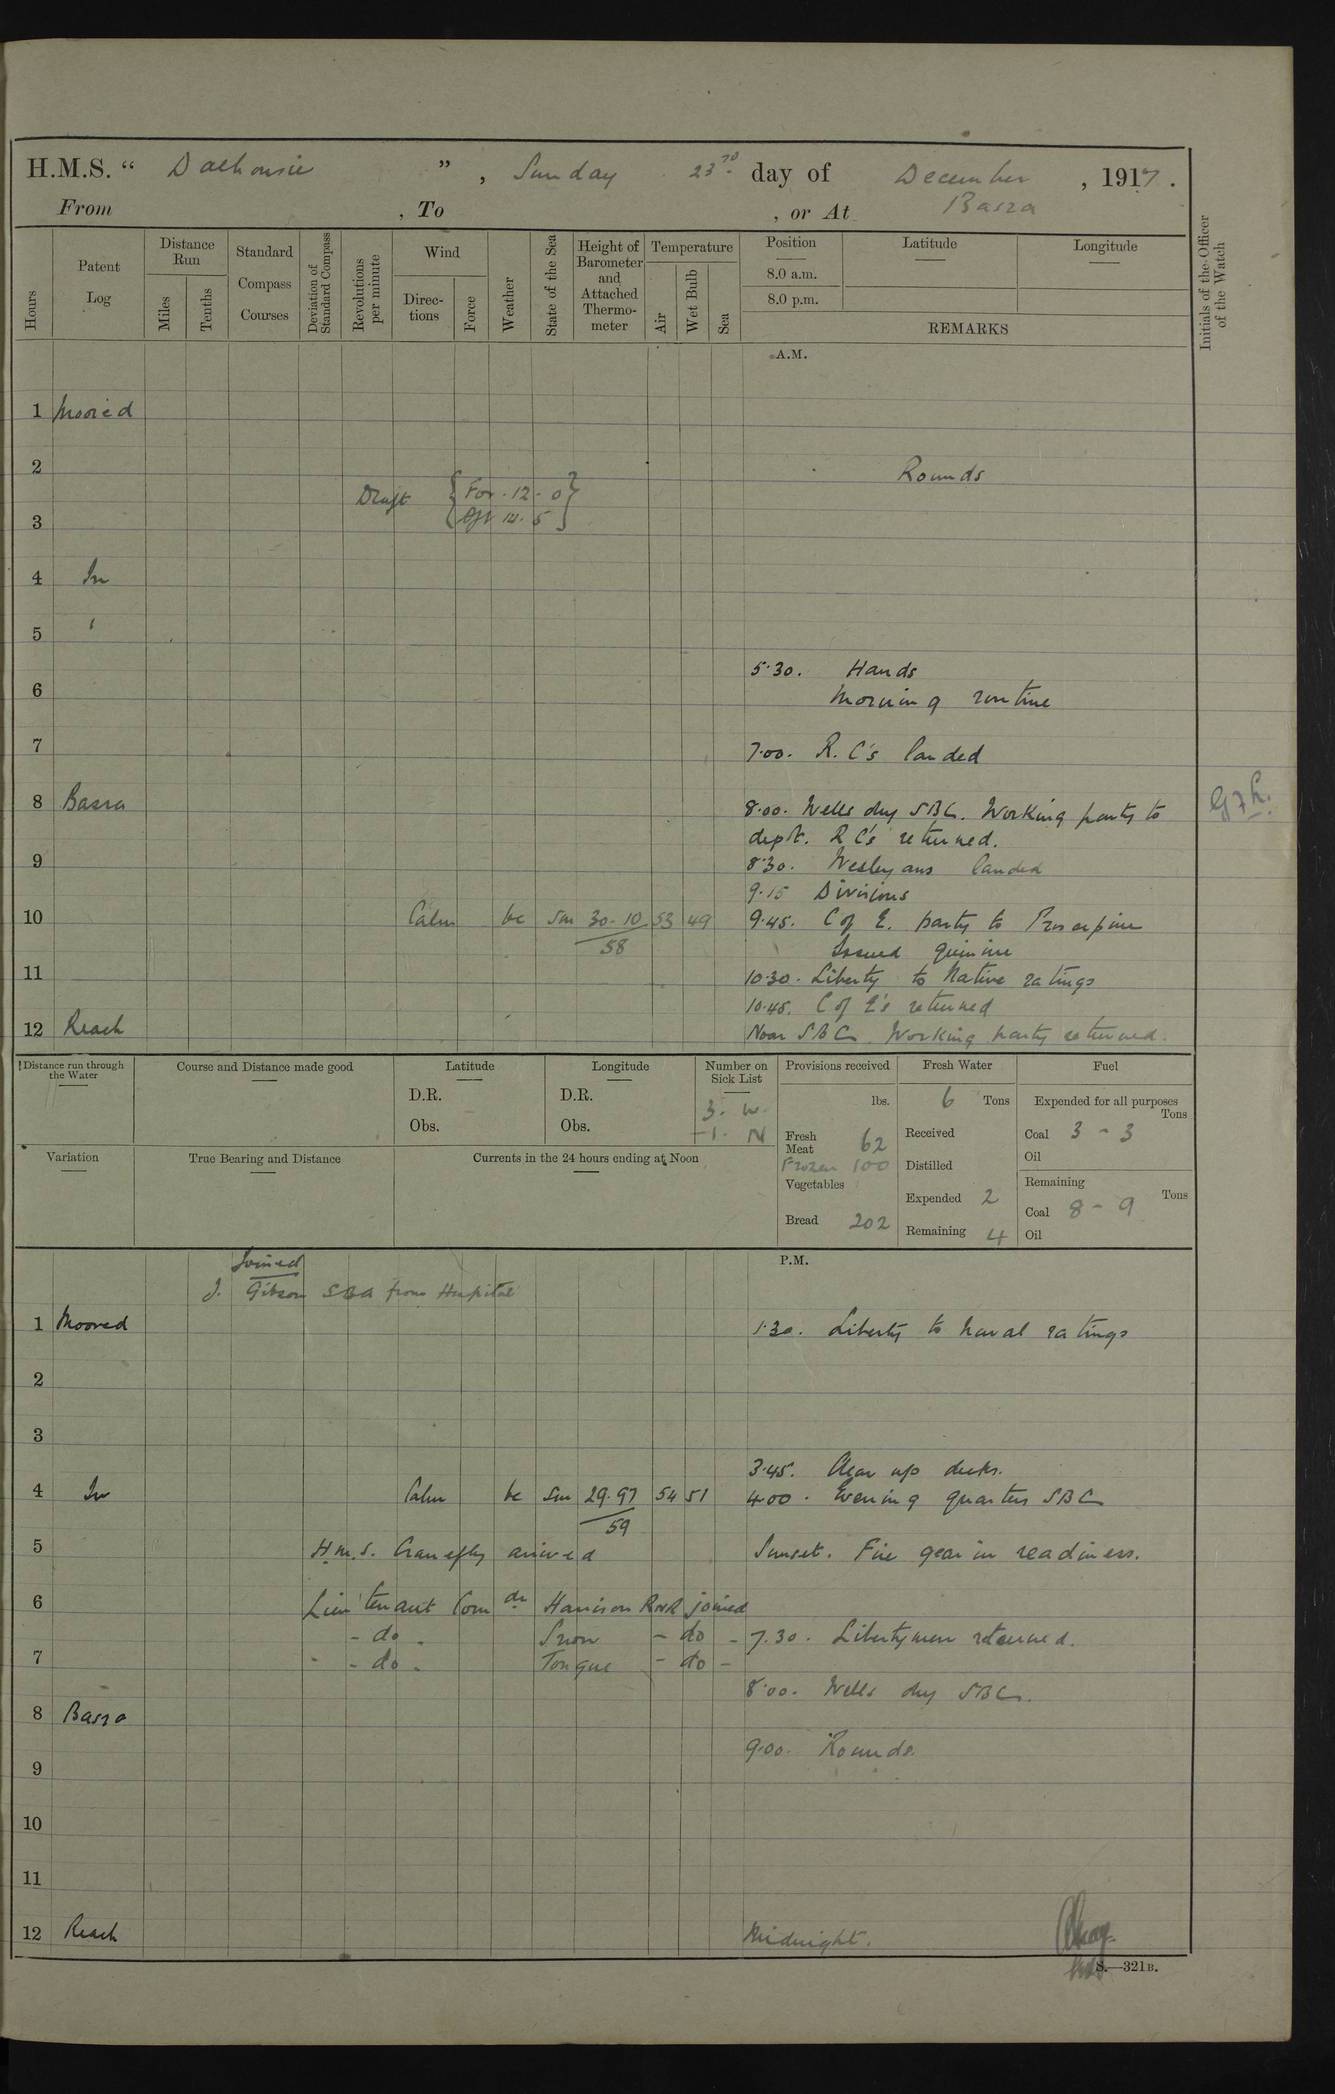 H.M.S. “ Dalhousie ” , Sunday 23rd day of December , 1917 .
From , To , or At Basra
Hours
Patent Log
Distance Run
Miles
Tenths
Standard Compass Courses
Deviation of Standard Compass
Revolutions per minute
Wind
Directions
Force
Weather
State of the Sea
Height of Barometer and Attached Thermometer
Temperature
Air
Wet Bulb
Sea
Position
8.0 a.m.
8.0 p.m.
Latitude
Longitude
REMARKS
Initials of the Officer of the Watch
A.M.
1 Moored
2 Rounds
Draft { For. 12 - 0 }
{ Aft 14. 5 }
3
4 In
5
5.30. Hands
6 Morning routine
7 7.00. R. C's landed
8 Basra 8.00. Wells dry SBC. Working party to
dept. R C's returned.
9 8.30. Wesleyans landed
9.15 Divisions
10 Calm bc Sm 30-10 53 49 9.45. C of E. party to Proserpine
58 Issued quinine
11 10.30. Liberty to Native ratings
10.45. C of E's returned
12 Reach Noon SBC Working party returned.
Distance run through the Water
Course and Distance made good
Latitude
D.R.
Obs.
Longitude
D.R.
Obs.
Number on Sick List
3. W.
1. N
Provisions received
lbs.
Fresh Meat 62
Frozen 100
Vegetables
Bread 202
Fresh Water
6 Tons
Received
Distilled
Expended 2
Remaining 4
Fuel
Expended for all purposes
Tons
Coal 3 - 3
Oil
Remaining
Tons
Coal 8 - 9
Oil
Variation
True Bearing and Distance
Currents in the 24 hours ending at Noon
P.M.
Joined
J. Gibson SBA from Hospital
1 Moored 1.30. Liberty to Naval ratings
2
3
3.45. Clear up decks.
4 In Calm bc Sm 29.97 54 51 4.00. Evening quarters SBC
59
5 H.M.S. Cranefly arrived Sunset. Fire gear in readiness.
6 Lieutenant Comdr Harrison RNR joined
- do - Snow - do - 7.30. Libertymen returned.
7 - do - Tongue - do -
8.00. Wells dry SBC.
8 Basra
9.00. Rounds.
9
10
11
12 Reach Midnight.
S.—321B.